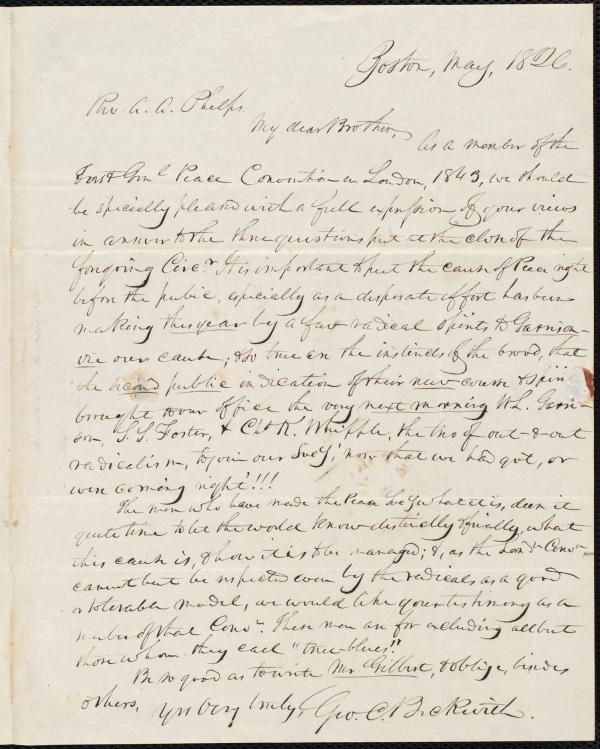 Boston, May, 1826.
Rev. A. A. Phelps.
My dear Brother,
As a member of the
First Genl Peace Convention in London, 1843, we should
be specially pleased with a full expression of your views
in answer to the three questions put at the close of the
foregoing Circr. It is important to put the cause of Peace right
before the public, especially as a desperate effort has been
making this year by a few radical spirits to Garrison-
ize our cause; & so true are the instincts of the brood, that
the second public indication of their new course & spirit
brought to our office the very next morning W. L. Garri-
son, S. S. Foster, & Chs K. Whipple, the trio of out-&-out
radicalism, to join our Socy, now that we had got, or
were coming right!!!
The men who have made the Peace Socy what it is, deem it
quite time to let the world know distinctly & fully, what
this cause is, & how it is to be managed; &, as the Londn Convn
cannot but be respected even by the radicals as a good
or tolerable model, we would like your testimony as a
member of that Convn. These men are for excluding all but
those whom they call "true-blues."
Be so good as to write Mr Gilbert, & oblige, besides
others,
Yrs very truly,
Geo. C. Beckwith.